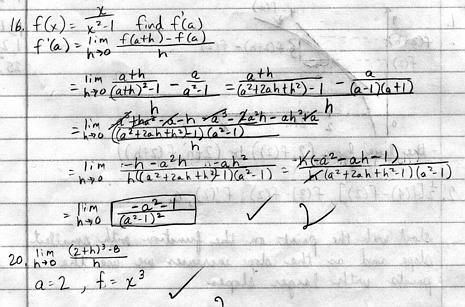 16. f(x) = x/(x²-1) find f'(a)
f'(a) = lim h→0 (f(a+h) - f(a))/h
= lim h→0 ((a+h)/((a+h)²-1) - a/(a²-1))/h = ((a+h)/((a²+2ah+h²)-1) - a/((a-1)(a+1)))/h
= lim h→0 (a³+ha²-a-h-a³-2a²h-ah²+a)/((a²+2ah+h²-1)(a²-1))/h
= lim h→0 (-h-a²h-ah²)/(h((a²+2ah+h²-1)(a²-1))) = h(-a²-ah-1)/(h(a²+2ah+h²-1)(a²-1))
= lim h→0 (-a²-1)/(a²-1)² ✓ 2
20. lim h→0 ((2+h)³-8)/h
a=2, f=x³ ✓